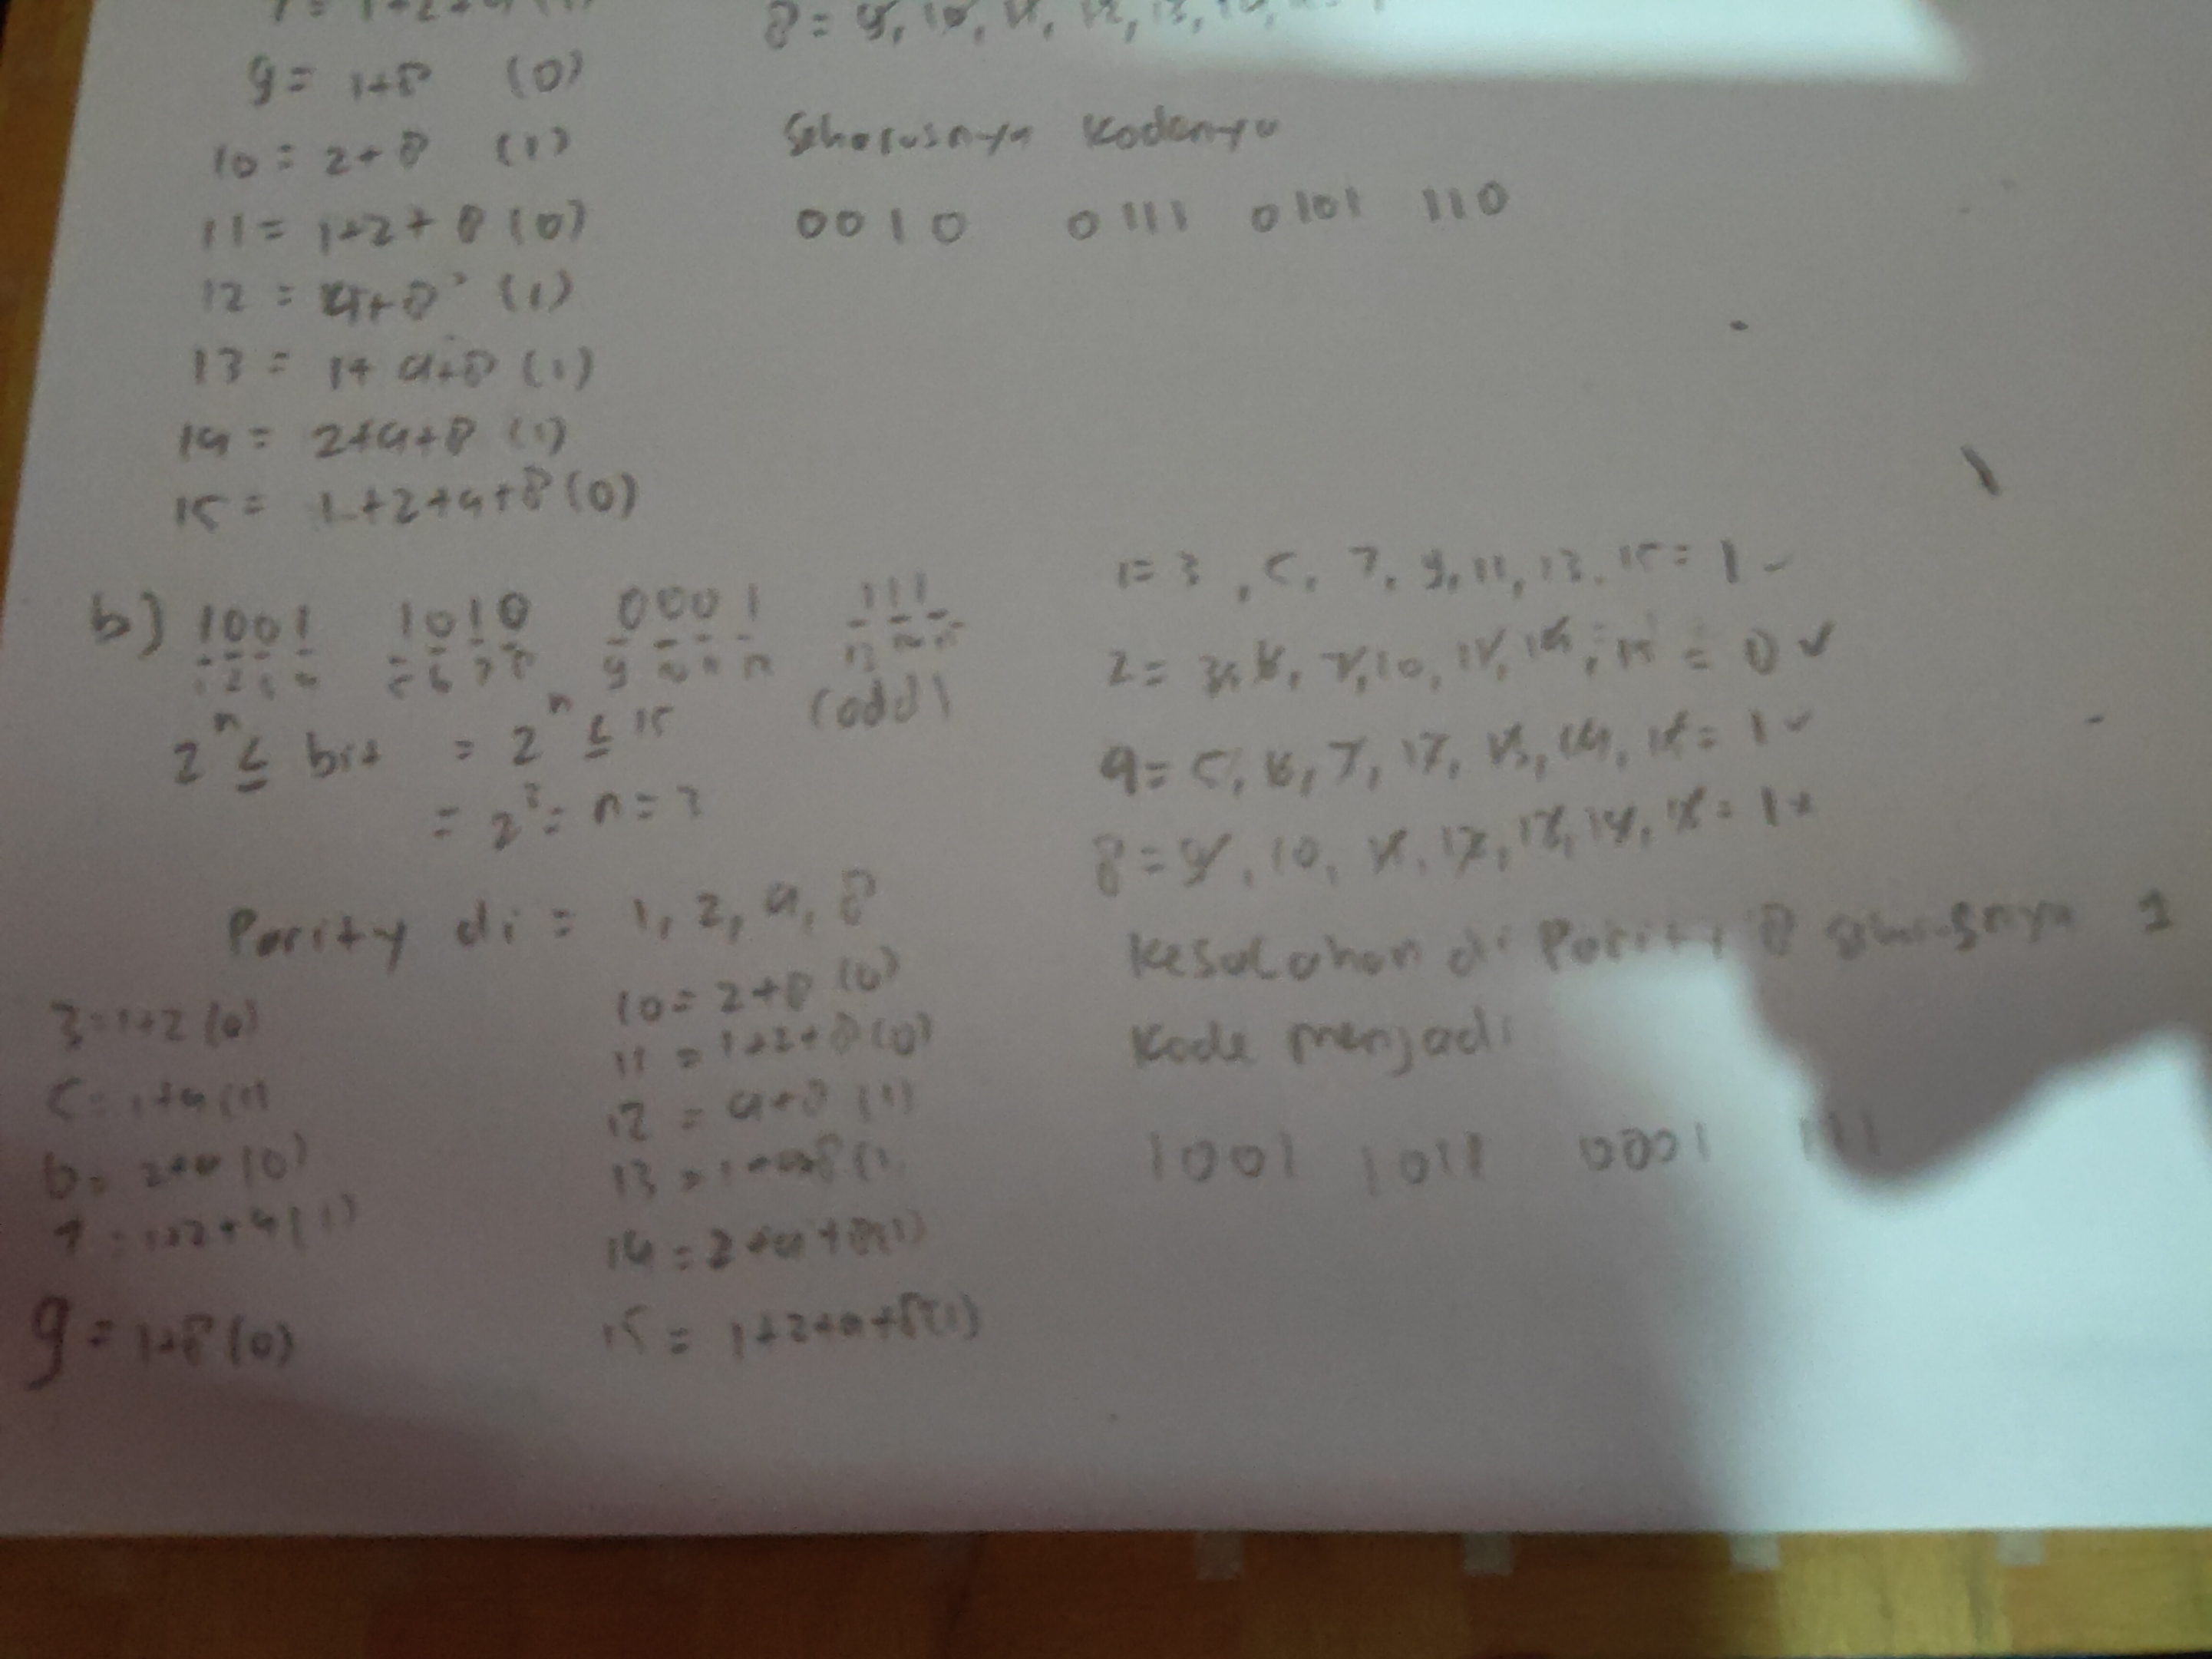 9 = 1+8 (0)
10 = 2+8 (1)
11 = 1+2+8 (0)
12 = 4+8 (1)
13 = 1+4+8 (1)
14 = 2+4+8 (1)
15 = 1+2+4+8 (0)
Seharusnya Kodenya
0010 0111 0101 110
b) 1001 1010 0001 111
(odd)
2^n ≤ bit = 2^n ≤ 15
= 2^3 = n = 3
Parity di = 1, 2, 4, 8
3 = 1+2 (0)
5 = 1+4 (1)
6 = 2+4 (0)
7 = 1+2+4 (1)
9 = 1+8 (0)
10 = 2+8 (0)
11 = 1+2+8 (0)
12 = 4+8 (1)
13 = 1+4+8 (1)
14 = 2+4+8 (1)
15 = 1+2+4+8 (1)
1 = 3, 5, 7, 9, 11, 13, 15 = 1
2 = 3, 6, 7, 10, 11, 14, 15 = 0 ✓
4 = 5, 6, 7, 12, 13, 14, 15 = 1 ✓
8 = 9, 10, 11, 12, 13, 14, 15 = 1 x
Kesalahan di Parity 8 1
Kode menjadi
1001 1011 0001 111